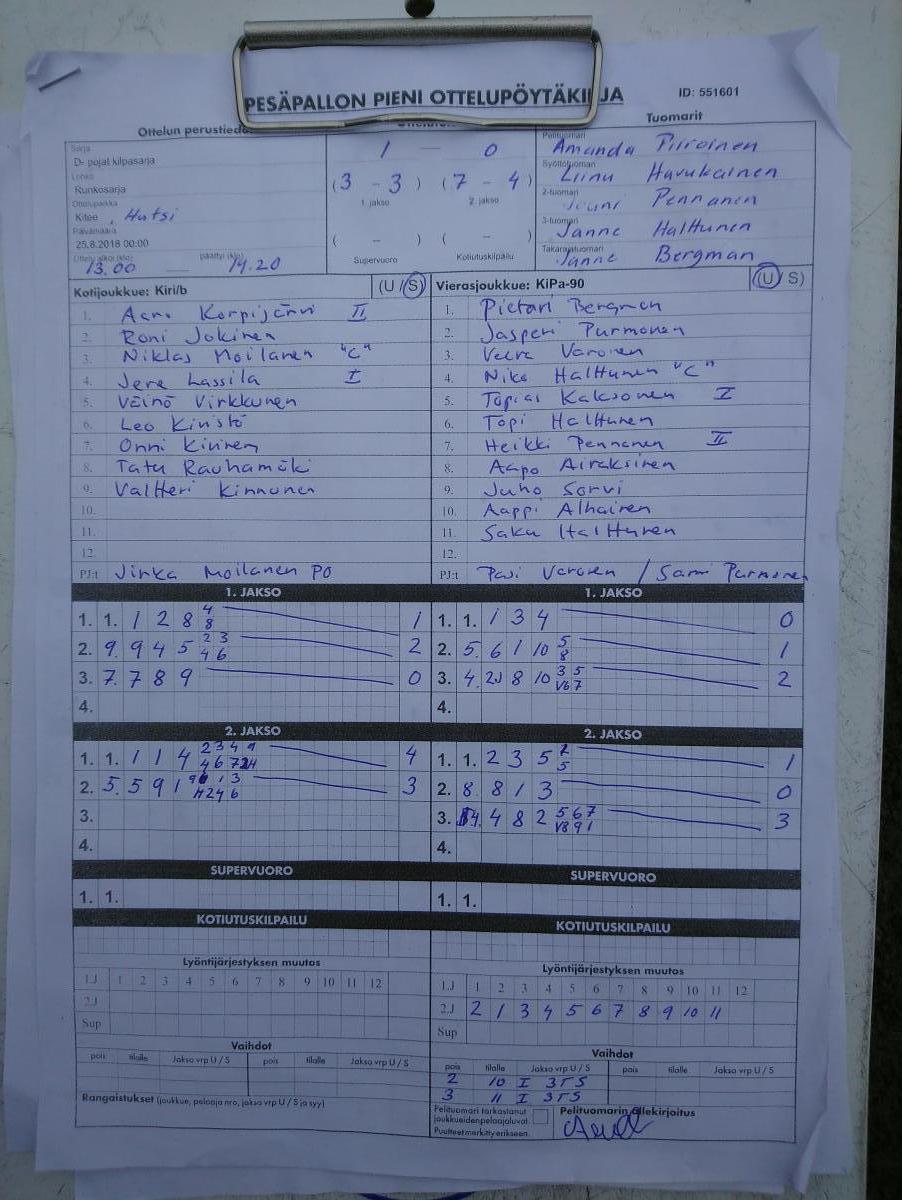 PESÄPALLON PIENI OTTELUPÖYTÄKIRJA
ID: 551601
Ottelun perustiedot
Sarja
D- pojat kilpasarja
Lohko
Runkosarja
Ottelupaikka
Kitee, Hutsi
Päivämäärä
25.8.2018 00:00
Ottelu alkoi (klo) päättyi (klo)
13.00 14.20
1 — 0
(3 - 3) (7 - 4)
1. jakso 2. jakso
( - ) ( - )
Supervuoro Kotiutuskilpailu
Tuomarit
Pelituomari
Amanda Piiroinen
Syöttötuomari
Liinu Havukainen
2-tuomari
Pennanen
3-tuomari
Janne Halttunen
Takarajatuomari
Janne Bergman
Kotijoukkue: Kiri/b (U / S)
1. Korpijärvi II
2. Roni Jokinen
3. Niklas Moilanen "C"
4. Jere Lassila I
5. Väinö Virkkunen
6. Leo
7. Onni Kivinen
8. Tatu Rauhamäki
9. Valtteri Kinnunen
10.
11.
12.
PJ:t Jirka Moilanen PO
Vierasjoukkue: KiPa-90 (U / S)
1. Pietari Bergman
2. Jasperi Purmonen
3. Varonen
4. Niko Halttunen "C"
5. Topias Kaksonen I
6. Topi Halttunen
7. Heikki Pennanen II
8. Aapo Airaksinen
9. Juho Sorvi
10. Aappi Alhainen
11. Saku Halttunen
12.
PJ:t Pasi Varonen / Sami Purmonen
1. JAKSO
1. 1. 1 2 8 8 4 1
2. 9. 9 4 5 2 3 2
4 6
3. 7. 7 8 9 0
4.
1. JAKSO
1. 1. 1 3 4 0
2. 5. 6 1 10 5 1
8
3. 4. 8 10 3 5 2
4.
2. JAKSO
1. 1. 1 1 4 2 3 4 9 4
2. 5. 5 9 1 3
3.
4.
2. JAKSO
1. 1. 2 3 5 1
2. 8. 8 1 3 0
3. 4. 4 8 2 5 6 7 3
4.
SUPERVUORO
1. 1.
SUPERVUORO
1. 1.
KOTIUTUSKILPAILU
KOTIUTUSKILPAILU
Lyöntijärjestyksen muutos
1.J 1 2 3 4 5 6 7 8 9 10 11 12
2.J
Sup
Lyöntijärjestyksen muutos
1.J 1 2 3 4 5 6 7 8 9 10 11 12
2.J 2 1 3 4 5 6 7 8 9 10 11
Sup
Vaihdot
pois tilalle Jakso vrp U / S pois tilalle Jakso vrp U / S
Rangaistukset (joukkue, pelaaja nro, jakso vrp U / S ja syy)
Vaihdot
pois tilalle Jakso vrp U / S pois tilalle Jakso vrp U / S
2 10 I 3 S
3 11 I 3 S
Pelituomari tarkastanut
joukkueiden pelaajaluvat.
Puutteet merkitty erikseen.
Pelituomarin allekirjoitus